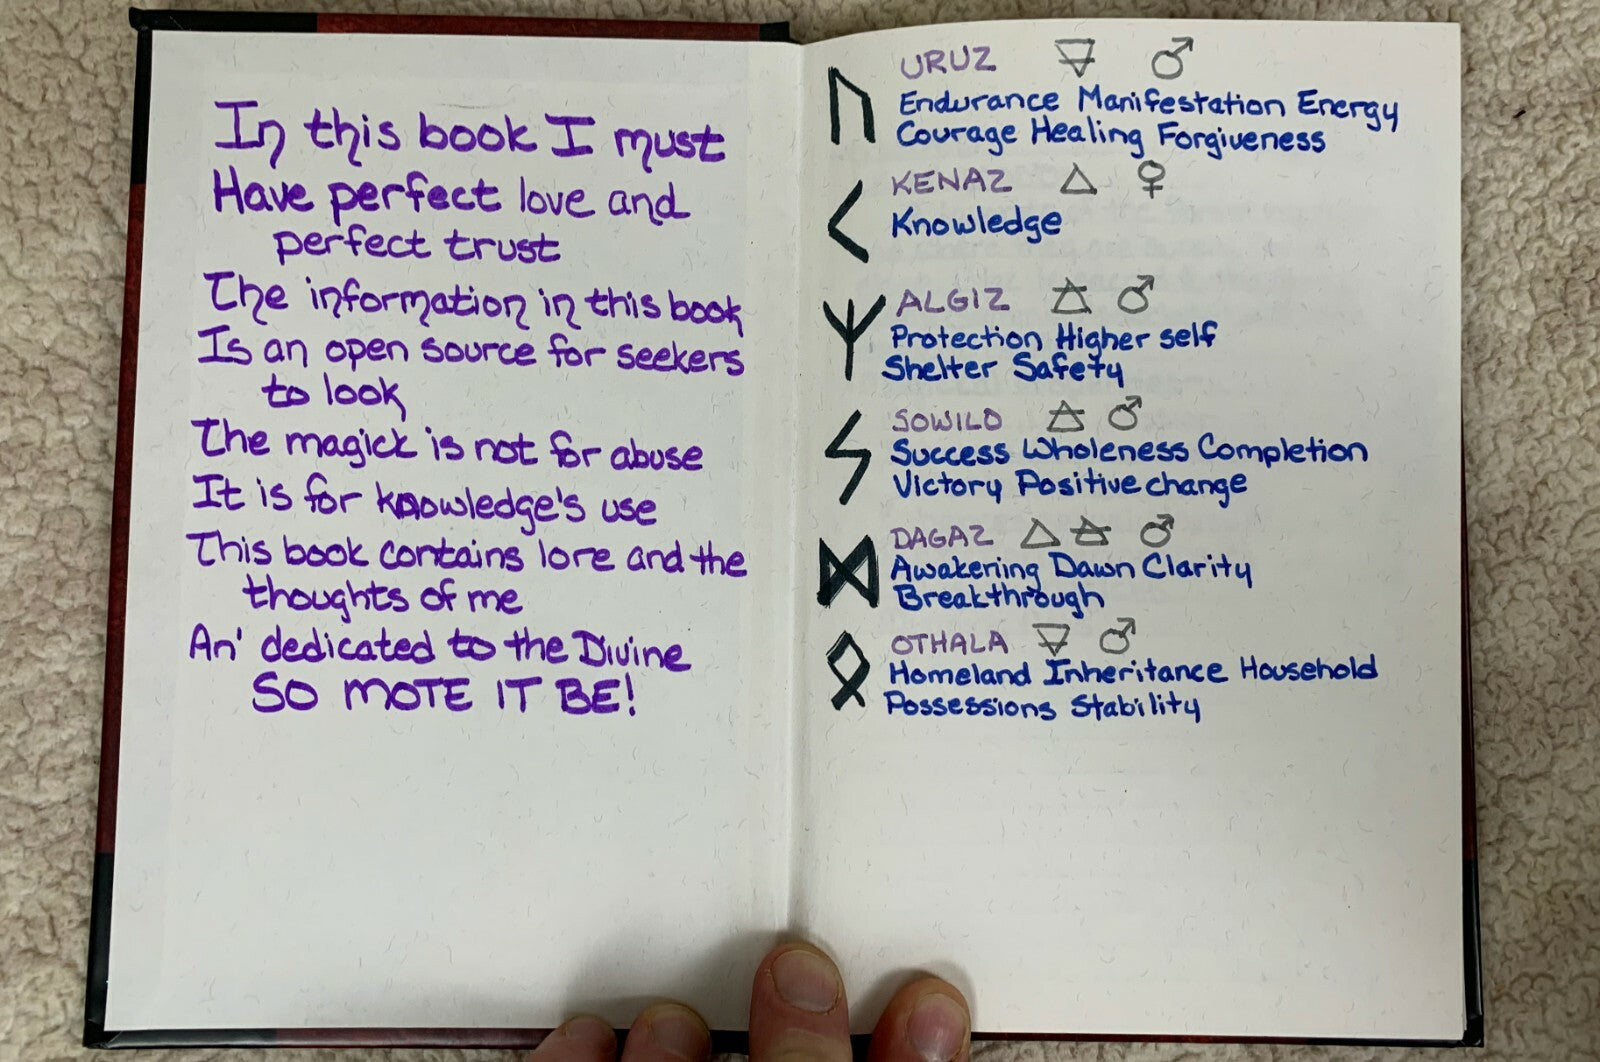 In this book I must
Have perfect love and
perfect trust
The information in this book
Is an open source for seekers
to look
The magick is not for abuse
It is for knowledge's use
This book contains lore and the
thoughts of me
An' dedicated to the Divine
SO MOTE IT BE!
ᚢ URUZ 🜃 ♂
Endurance Manifestation Energy
Courage Healing Forgiveness
ᚲ KENAZ 🜂 ♀
Knowledge
ᛉ ALGIZ 🜁 ♂
Protection Higher self
Shelter Safety
ᛊ SOWILO 🜁 ♂
Success Wholeness Completion
Victory Positive change
ᛞ DAGAZ 🜂 🜁 ♂
Awakening Dawn Clarity
Breakthrough
ᛟ OTHALA 🜃 ♂
Homeland Inheritance Household
Possessions Stability